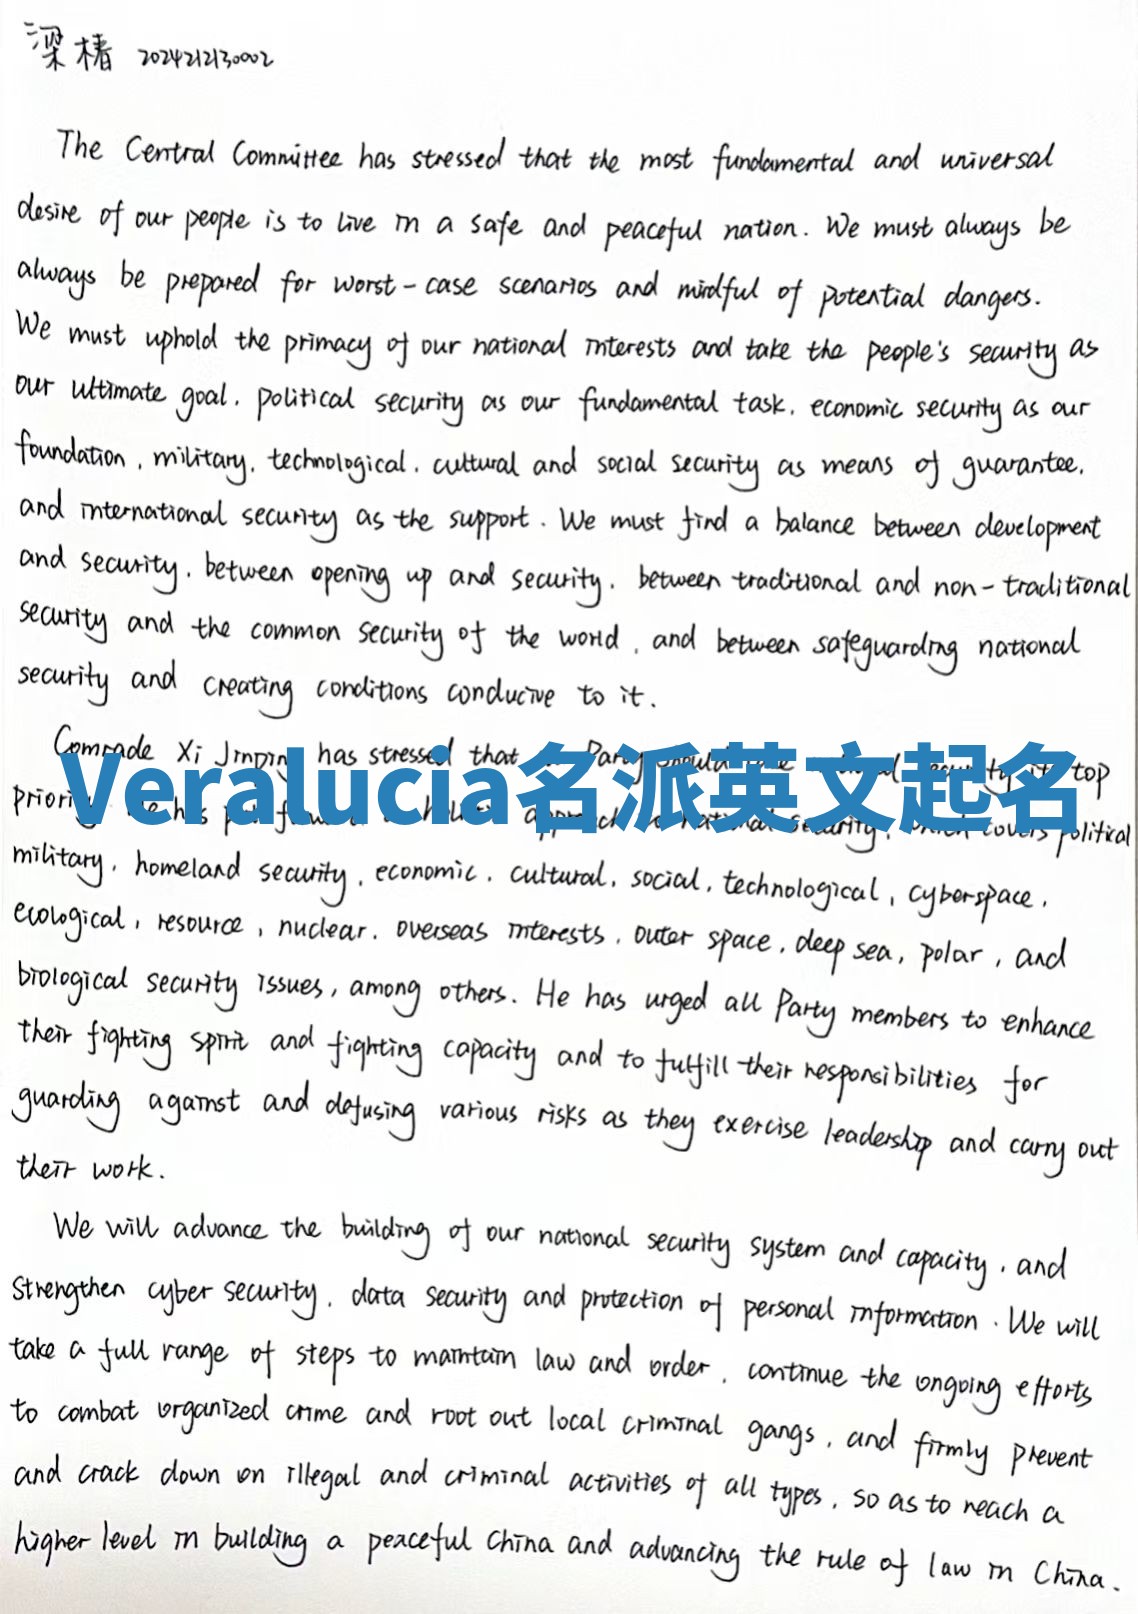 梁椿 2024212130002
The Central Committee has stressed that the most fundamental and universal
desire of our people is to live in a safe and peaceful nation. We must always be
always be prepared for worst-case scenarios and mindful of potential dangers.
We must uphold the primacy of our national interests and take the people's security as
our ultimate goal, political security as our fundamental task, economic security as our
foundation, military, technological, cultural and social security as means of guarantee,
and international security as the support. We must find a balance between development
and security, between opening up and security, between traditional and non-traditional
security and the common security of the world, and between safeguarding national
security and creating conditions conducive to it.
Comrade Xi Jinping has stressed that Party should security its top
Veralucia名派英文起名
priority has put approach to national security, which covers political
military, homeland security, economic, cultural, social, technological, cyberspace,
ecological, resource, nuclear, overseas interests, outer space, deep sea, polar, and
biological security issues, among others. He has urged all Party members to enhance
their fighting spirit and fighting capacity and to fulfill their responsibilities for
guarding against and defusing various risks as they exercise leadership and carry out
their work.
We will advance the building of our national security system and capacity, and
strengthen cyber security, data security and protection of personal information. We will
take a full range of steps to maintain law and order, continue the ongoing efforts
to combat organized crime and root out local criminal gangs, and firmly prevent
and crack down on illegal and criminal activities of all types, so as to reach a
higher level in building a peaceful China and advancing the rule of law in China.